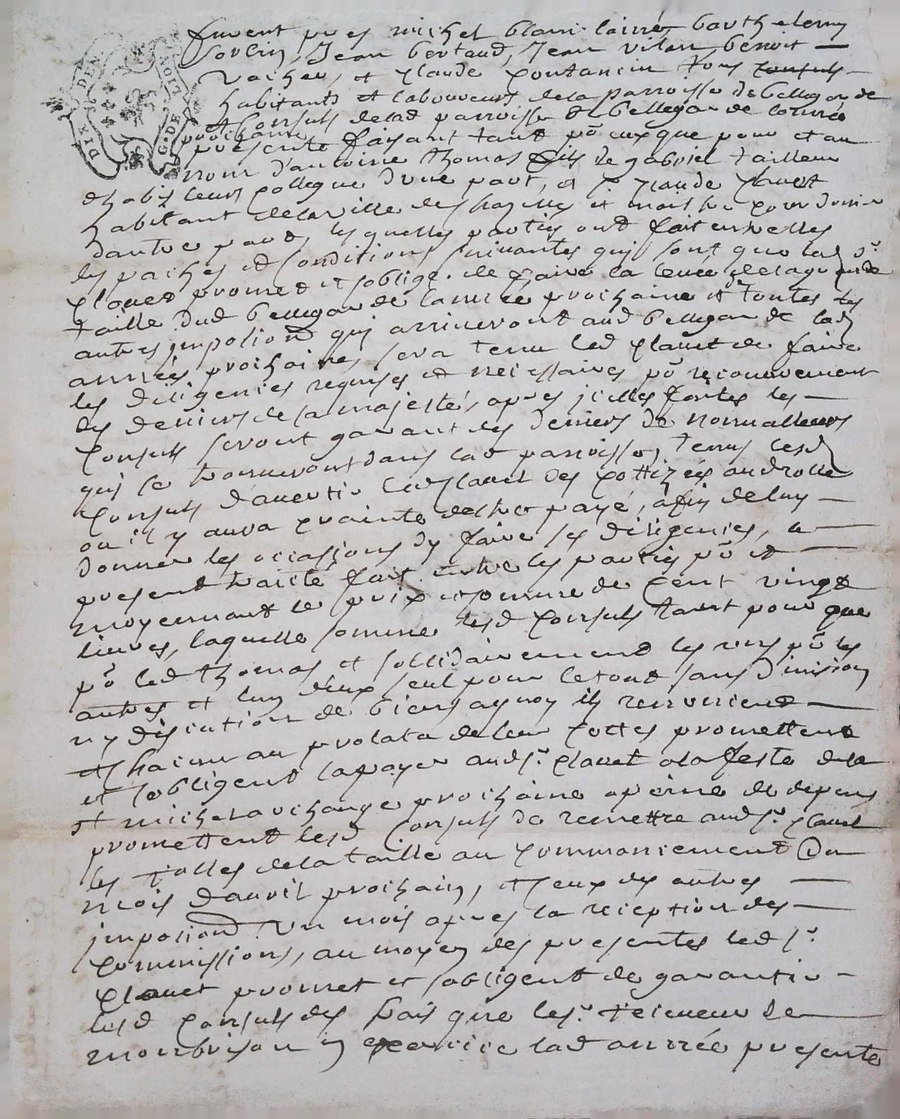 DIX DEN G. DE LION
furent pnts michel blanc lainé, barthelemy
Jean bertaud, Jean vilan, benoit
vacher, et claude pontanin tous
habitants et laboureurs de la parroisse de bellegarde
et Consuls de lad parroisse de bellegarde de lannée
prochaine
presente faisant tant pr eux que pour et au
nom d'antoine thomas fils de gabriel tailleur
d'habits leur collegue d'une part, et Sr claude plauet
habitant de la ville de chazelle et
dautre part, lesquelles parties ont fait entrelles
les paches et Conditions suivantes qui sont que led Sr
plauet promet et soblige de faire la leuee de
taille dud bellegarde de lannée prochaine et toutes les
autres impoõns qui arriveront aud bellegarde lad
année prochaine, sera tenu led plauet de faire
les diligences requises et necessaires pr recouvrement
des deniers de sa majesté, apres jcelles faites les
Consuls seront garant des deniers de nonvalleurs
qui se trouveront dans lad parroisse, tenus lesd
Consuls d'auertir led plauet des cottizes
ou il y aura crainte destre payé, afin de luy
donner les occassions dy faire ses diligences, le
present traité fait entre les parties pr et
moyennant le prix et somme de Cent vingt
liures, laquelle somme lesd Consuls tant pour que
pr led thomas et sollidairement les uns pr les
autres et lun deux seul pour le tout sans division
ny discution de biens aquoy ils renoncent
et chacun au prolata de leur cottes promettent
et sobligent la payer aud Sr plauet a la feste de
st michel archange prochaine a peine de depens
promettent lesd Consuls de remettre aud Sr plauet
les rolles de la taille au commancement du
mois dauril prochain, et ceux des autres
jmpoõns un mois apres la reception des
commissions, au moyen des presentes led Sr
plauet promet et sobligent de garantir
lesd Consuls des frais que le Sr receueur de
montbrison exercice lad année presente